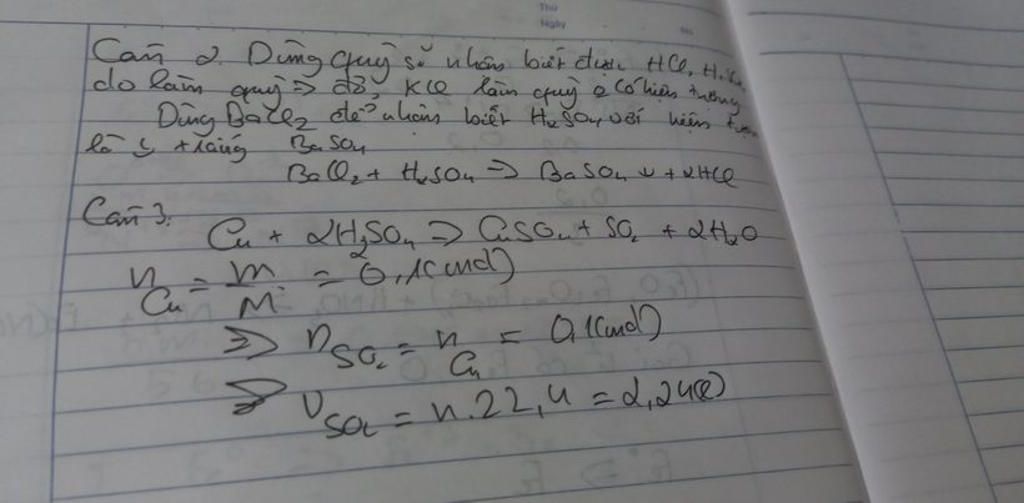 Thứ
Ngày
No.
Câu 2. Dùng quỳ sẽ nhận biết được HCl, H₂SO₄
do làm quỳ => đỏ, KCl làm quỳ 0 có hiện tượng
Dùng BaCl₂ để nhận biết H₂SO₄ với hiện tượng
là ↓ trắng BaSO₄
BaCl₂ + H₂SO₄ => BaSO₄ ↓ + 2HCl
Câu 3.
Cu + 2H₂SO₄ => CuSO₄ + SO₂ + 2H₂O
n Cu = m/M = 0,1(mol)
=> n SO₂ = n Cu = 0,1(mol)
=> V SO₂ = n.22,4 = 2,24(l)